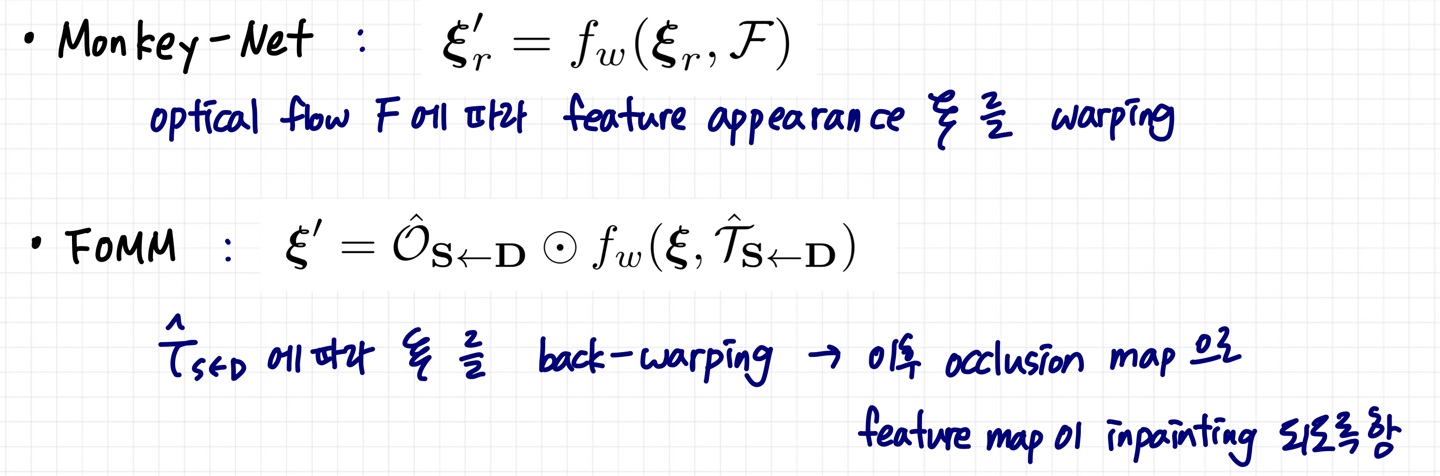 • Monkey-Net : ξ′_r = f_w(ξ_r, 𝓕)
optical flow F에 따라 feature appearance ξ를 warping
• FOMM : ξ′ = 𝒪̂_{S←D} ⊙ f_w(ξ, 𝒯̂_{S←D})
𝒯̂_{S←D} 에 따라 ξ를 back-warping → 이후 occlusion map 으로
feature map 이 inpainting 되도록함